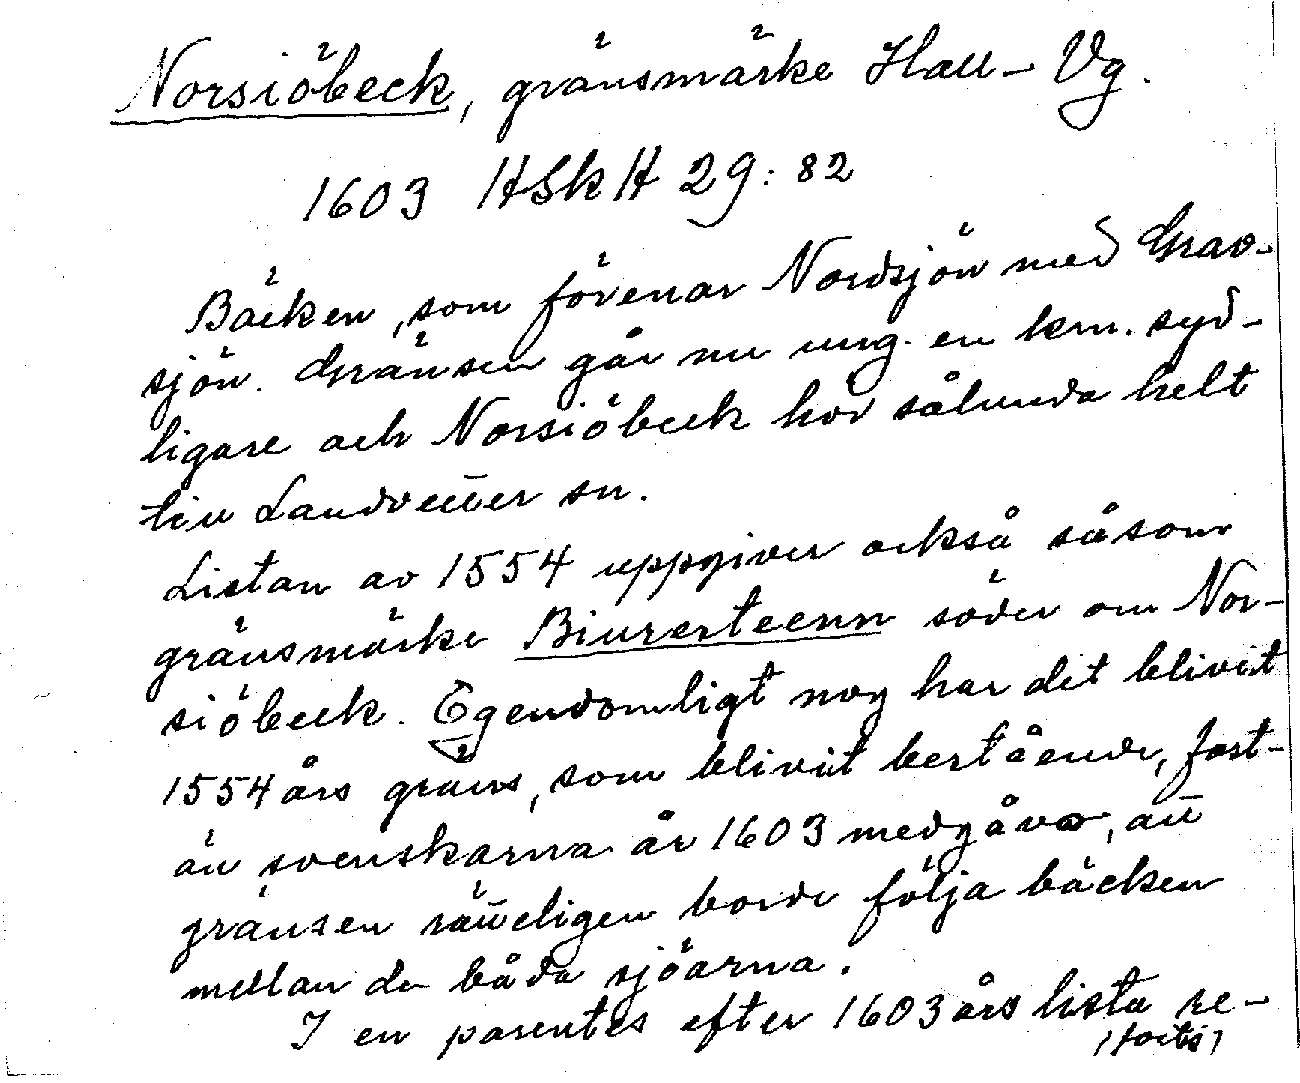 Norsiöbeck, gränsmärke Hall - Vg.
1603 HSkH 29:82
Bäcken, som förenar Nordsjön med Grav-
sjön. Gränsen går nu ung. en km. syd-
ligare och Norsiöbeck hör sålunda helt
till Landvetter sn.
Listan av 1554 uppgiver också såsom
gränsmärke Biurersteenn söder om Nor-
siöbeck. Egendomligt nog har det blivit
1554 års gräns, som blivit bestående, fast-
än svenskarna år 1603 medgåvo, att
gränsen rätteligen borde följa bäcken
mellan de båda sjöarna.
I en parentes efter 1603 års lista re-
/forts/